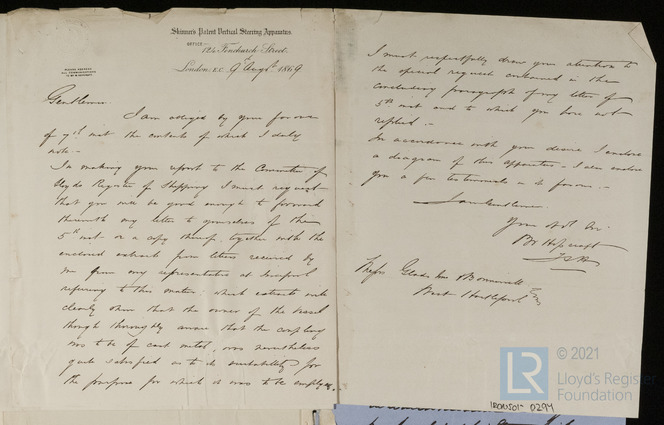 Skinner's Patent Vertical Steering Apparatus.
OFFICE
124 Fenchurch Street.
London, E.C. 9th Augst. 1869
Gentlemen
I am obliged by your favour
of 7th inst the contents of which I duly
note.—
In making your report to the Committee of
Lloyds Register of Shipping I must request
that you will be good enough to forward
therewith my letter to yourselves of the
5th inst or a copy thereof, together with the
enclosed extracts from letters received by
me from my representative at Liverpool
referring to this matter: which extracts will
clearly show that the owner of the vessel
though thoroughly aware that the coupling
was to be of cast metal, was nevertheless
quite satisfied as to its suitability for
the purpose for which it was to be employed.
I must respectfully draw your attention to
the special request contained in the
concluding paragraph of my letter of
5th inst and to which you have not
replied.—
In accordance with your desire I enclose
a diagram of this apparatus. I also enclose
you a few testimonials in its favour.—
I am Gentlemen
Your Obt Sr.
Messrs
West Hartlepool
LR
© 2021
Lloyd's Register
Foundation
IRON501-0294